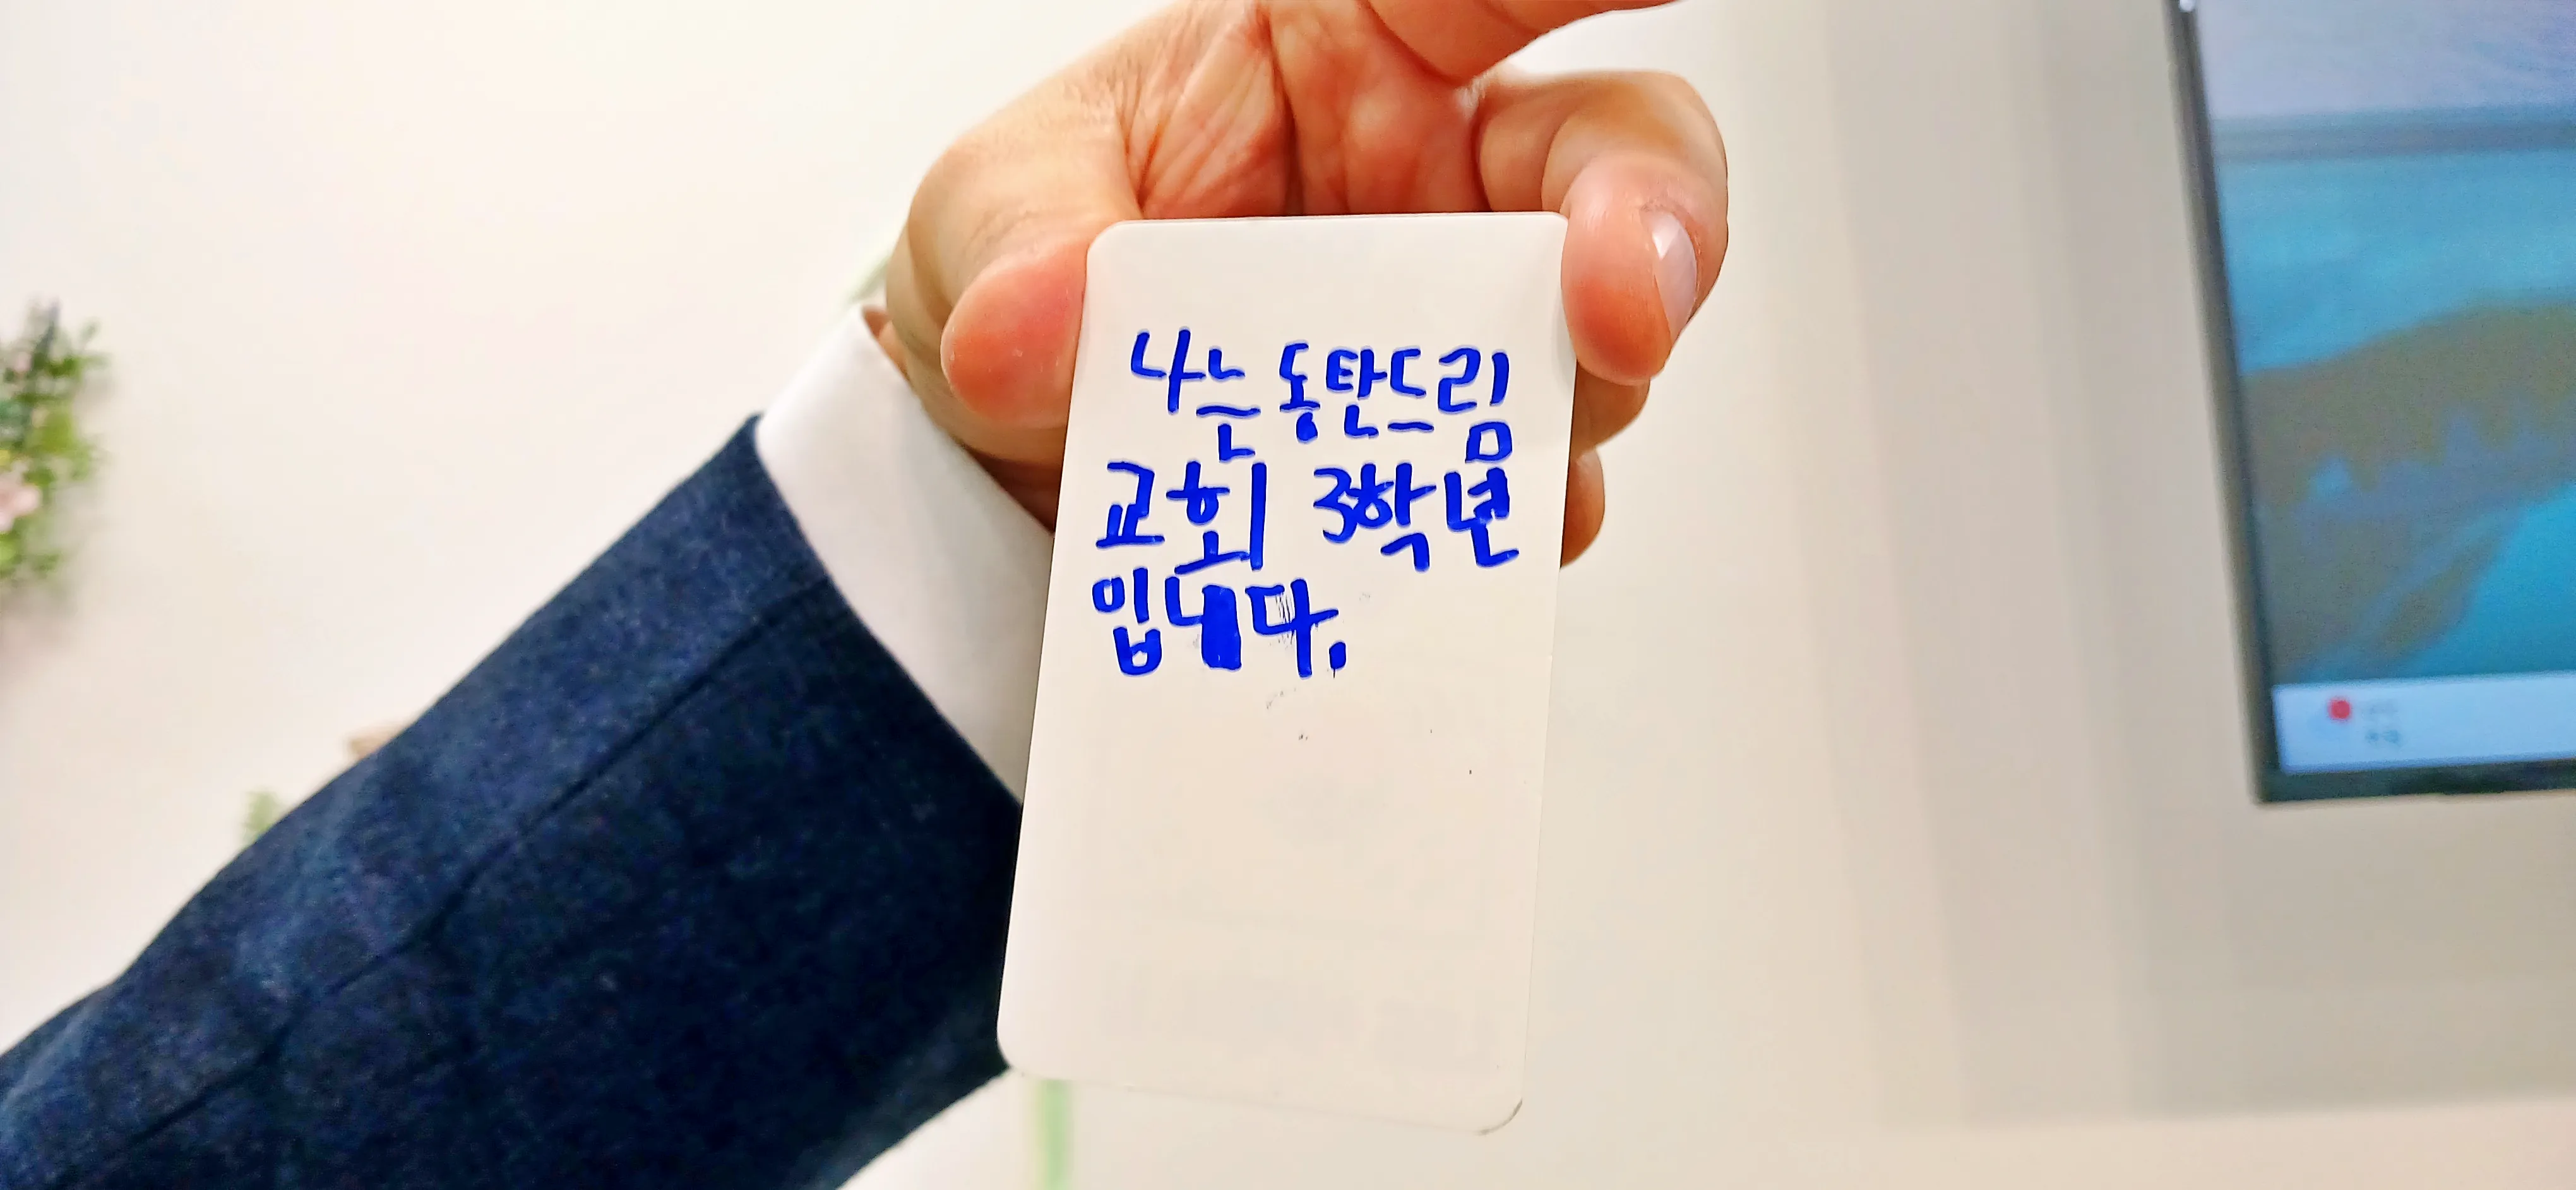 나는 동탄드림
교회 3학년
입니다.